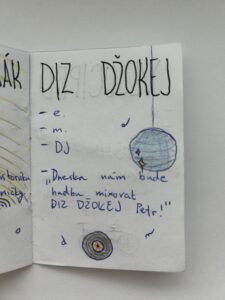 ÁK
DIZ DŽOKEJ
- e.
- m.
- DJ
- „Dneska nám bude
hudbu mixovat
DIZ DŽOKEJ Petr!"